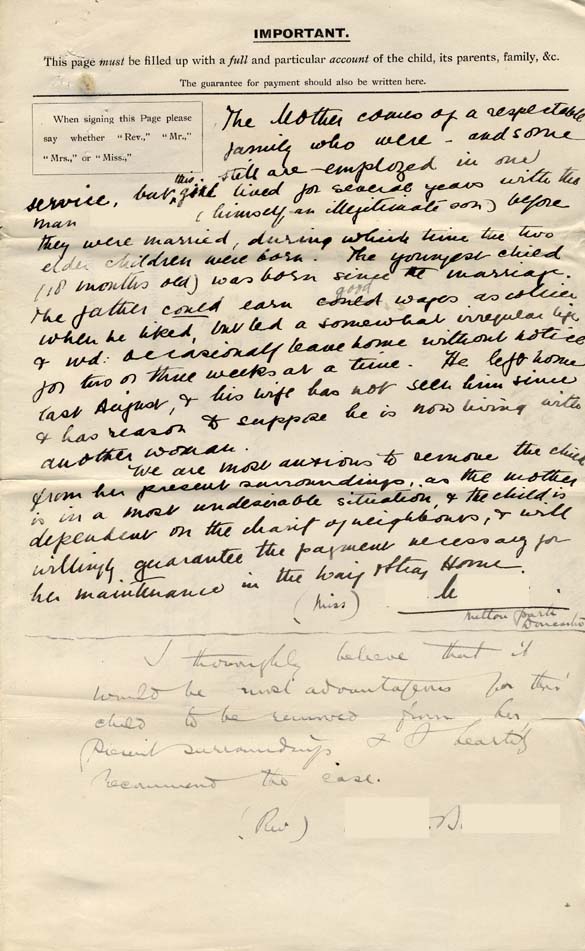 IMPORTANT.
This page must be filled up with a full and particular account of the child, its parents, family, &c.
The guarantee for payment should also be written here.
When signing this Page please
say whether "Rev.," "Mr.,"
"Mrs.," or "Miss.,"
The Mother comes of a respectable
family who were - and some
still are - employed in our
service, but this girl lived for several years with the
man (himself an illegitimate son) before
they were married, during which time the two
elder children were born. The youngest child
(18 months old) was born since the marriage.
The father could earn good wages as collier
when he liked, but led a somewhat irregular life
& wd: occasionally leave home without notice
for two or three weeks at a time. He left home
last August, & his wife has not seen him since
& has reason to suppose he is now living with
another woman.
We are most anxious to remove the child
from her present surroundings, as the mother
is in a most undesirable situation, & the child is
dependent on the charity of neighbours, & will
willingly guarantee the payment necessary for
her maintenance in the Waif & Stray Home.
(Miss)
Park
Doncaster
I thoroughly believe that it
would be most advantageous for this
child to be removed from her
present surroundings & I heartily
recommend the case.
(Rev) B.